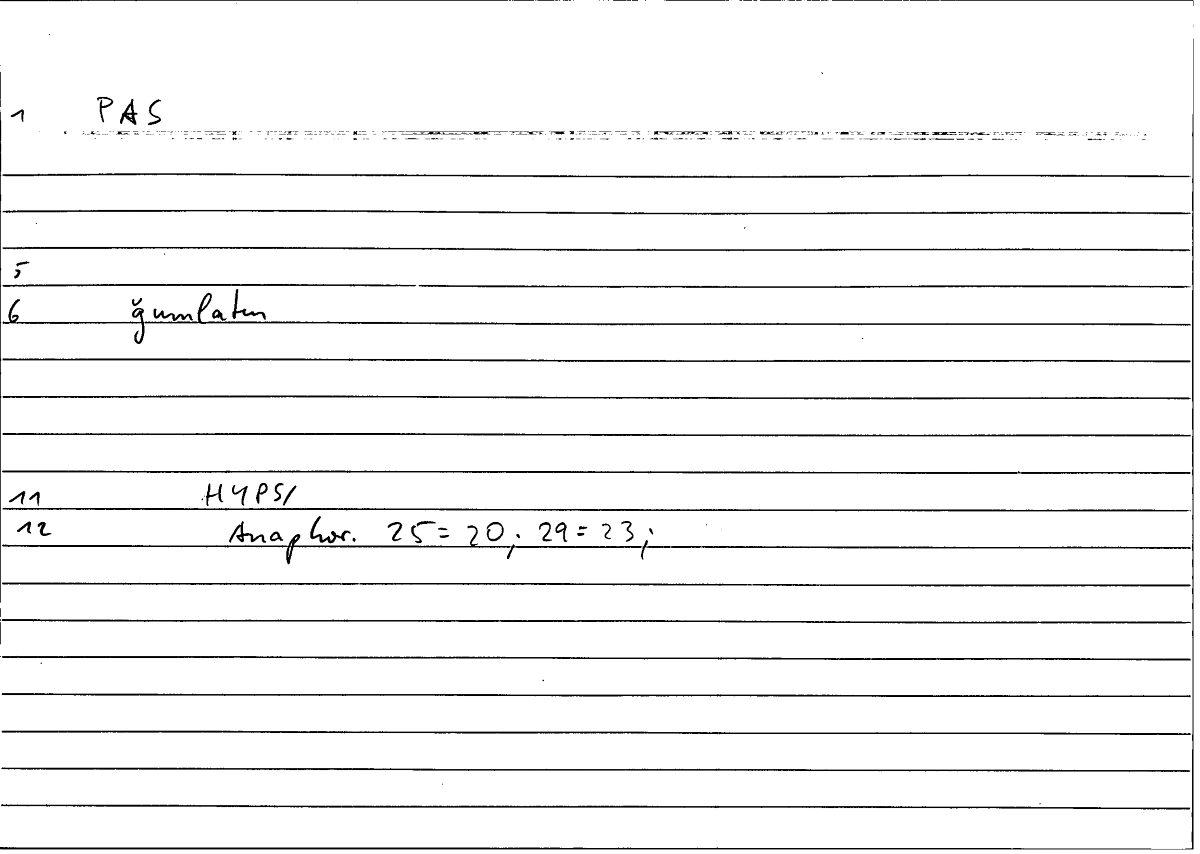 1 PAS
5
6 ǧumlatun
11 HYPS/
12 Anaphor. 25 = 20; 29 = 23;